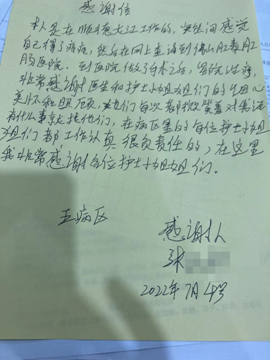 感谢信
本人是在顺德大江工作的,突然间感觉
自己得了痔疮,然后在网上查询到佛山肛泰肛
肠医院。到医院做了手术之后,留院治疗,
非常感谢医生和护士小姐姐们的细心
关怀和照顾,她们每次都微笑着对我说
有什么事就去找她们,在病区里的每位护士小
姐姐们都工作认真很负责任的,在这里
我非常感谢每位护士小姐姐们。
五病区
感谢人
张
2022年7月4号